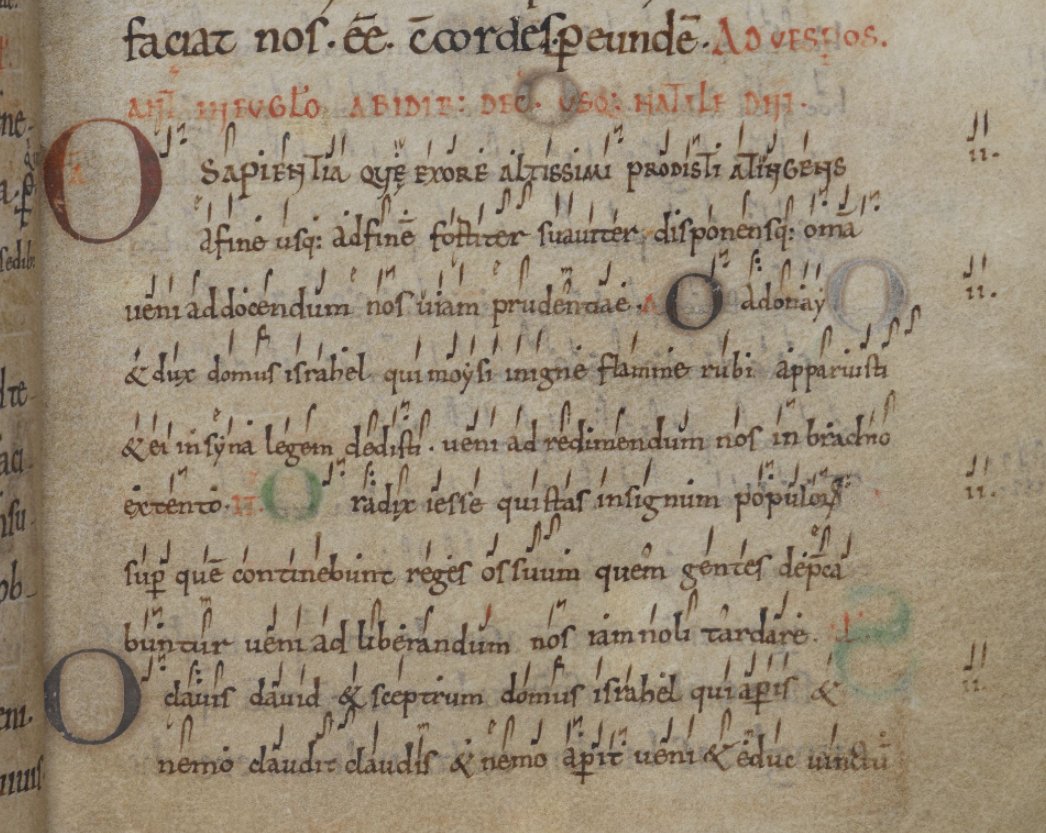 faciat nos. ēē. c̄cordes. ꝑ eundē. AD VESṔOS.
ANT̄ IN EUGLO A B I D I B: DEC̄. USQ: NATALE DNI.
O SAPIENTIA QUĘ EX ORE ALTISSIMI PRODISTI ATINGENS
a fine usq: ad finē fortiter suauiter disponensq: om̄a
ueni ad docendum nos uiam prudentiae. A O adonay
& dux domus israhel qui moysi in igne flamme rubi apparuisti
& ei in syna legem dedisti. ueni ad redimendum nos in brachio
extento. O radix iesse qui stas in signum populoꝝ
suꝑ quē continebunt reges os suum quem gentes dep̄ca
buntur ueni ad liberandum nos iam noli tardare.
O clauis dauid & sceptrum domus israhel qui aꝑis &
nemo claudit claudis & nemo aꝑit ueni & educ uinctū